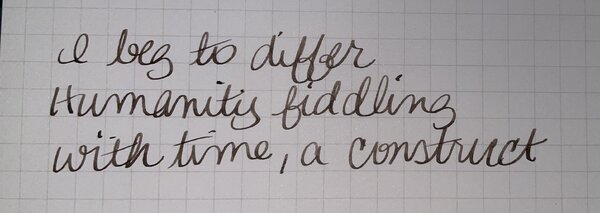 I beg to differ
Humanity fiddling
with time, a construct